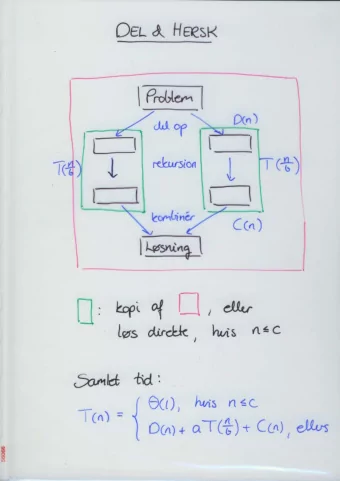 DEL & HERSK
Problem
del op
D(n)
T(n/b)
rekursion
T(n/b)
kombinér
C(n)
Løsning
: kopi af , eller
løs direkte, hvis n≤c
Samlet tid:
T(n) = { Θ(1), hvis n≤c
D(n) + aT(n/b) + C(n), ellers